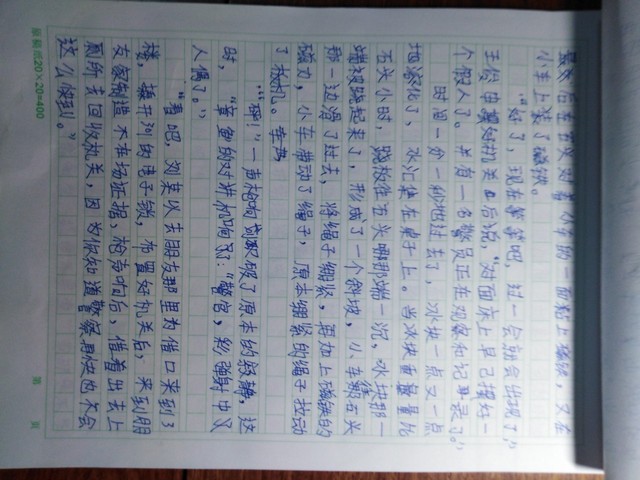 最后在玄关对着小车的一面贴上磁铁，又在
小车上装了磁铁。
“好了，现在等等吧，过一会就会出现了，”
王玲申摸好机关后说，“对面床上早已摆好一
个假人了。并有一名警员正在观察和记录了。”
时间一分一秒地过去了，冰块一点又一点
地溶化了，水汇集在桌子上。当冰块重量量比
石头小时，跷板往石头哪那端一沉，冰块那一
端被跷起来了，形成了一个斜坡，小车绑石头
那一边滑了过去，将绳子绷紧，再加上磁铁的
磁力，小车带动了绳子，原本绷紧的绳子拉动
了扳机。
“砰！”一声枪响打破了原本的寂静，这
时，章鱼的对讲机响了：“警官，彩强射中又
人偶了。”
“看吧，刘某以去朋友那里为借口来到3
楼，撬开301的电子锁，布置好机关后，来到朋
友家制造不在场证据，枪声响后，借着出去上
厕所去回收机关，因为你知道警察再快也不会
这么快到。”
原稿纸20×20=400
第 页